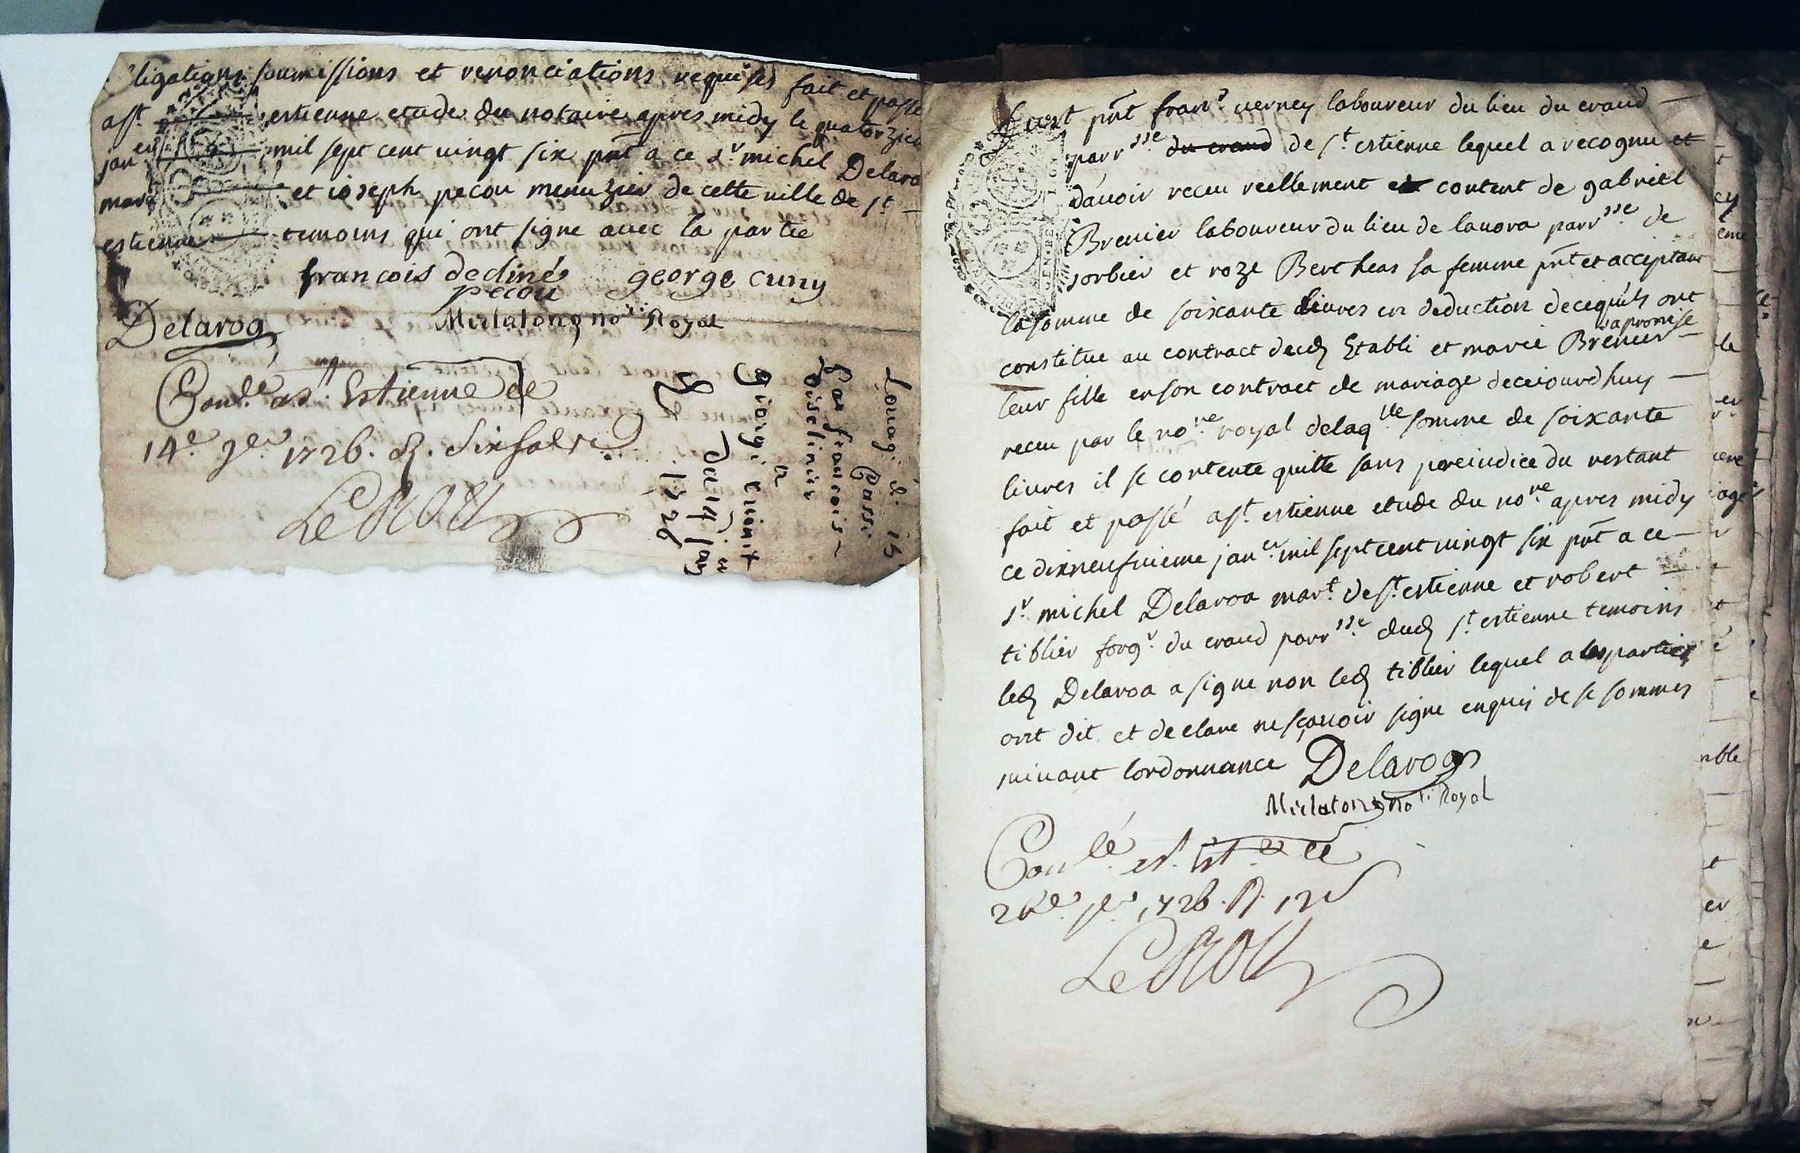 ligations soumissions et renonciations requises fait et passé
a st estienne etude du notaire apres midy le quatorzie
janer mil sept cent vingt six pnt a ce sr michel Delaroa
mard et ioseph pecou menuzier de cette ville de st
estienne temoins qui ont signe avec la partie
francois decliné george cuny
pecou
Delaroa Mirlatong nore Royal
Conlé a st Estienne ce
14e jer 1726. R. six sols
LeROU
Louage de
Par francois
giorgi
Du 14 jan
1726
Fust pnt franc verney laboureur du lieu du craud
parrsse du craud de st estienne lequel a recognu et
davoir receu reellement et content de gabriel
Brenier laboureur du lieu de lavora parrsse de
sorbier et roze Bertheas sa femme pnt et acceptant
la somme de soixante livres en deduction de cequils ont
sa promise
constitue au contract dud Etabli et marie Brenier
leur fille en son contract de mariage de ceiourdhuy
receu par le nore royal de laqlle somme de soixante
livres il se contente quitte sans preiudice du restant
fait et passé a st estienne etude du nore apres midy
ce dixneufvieme janer mil sept cent vingt six pnt a ce
sr michel Delaroa mart de st estienne et robert
tiblier forgr du craud parrsse dud st estienne temoins
led Delaroa a signe non led tiblier lequel a les parties
ont dit et declare ne sçavoir signe enquis de se sommes
suivant lordonnance Delaroa
Mirlatong nore Royal
Conlé a st Est. ce
jer 1726. R. 12s
LeROU